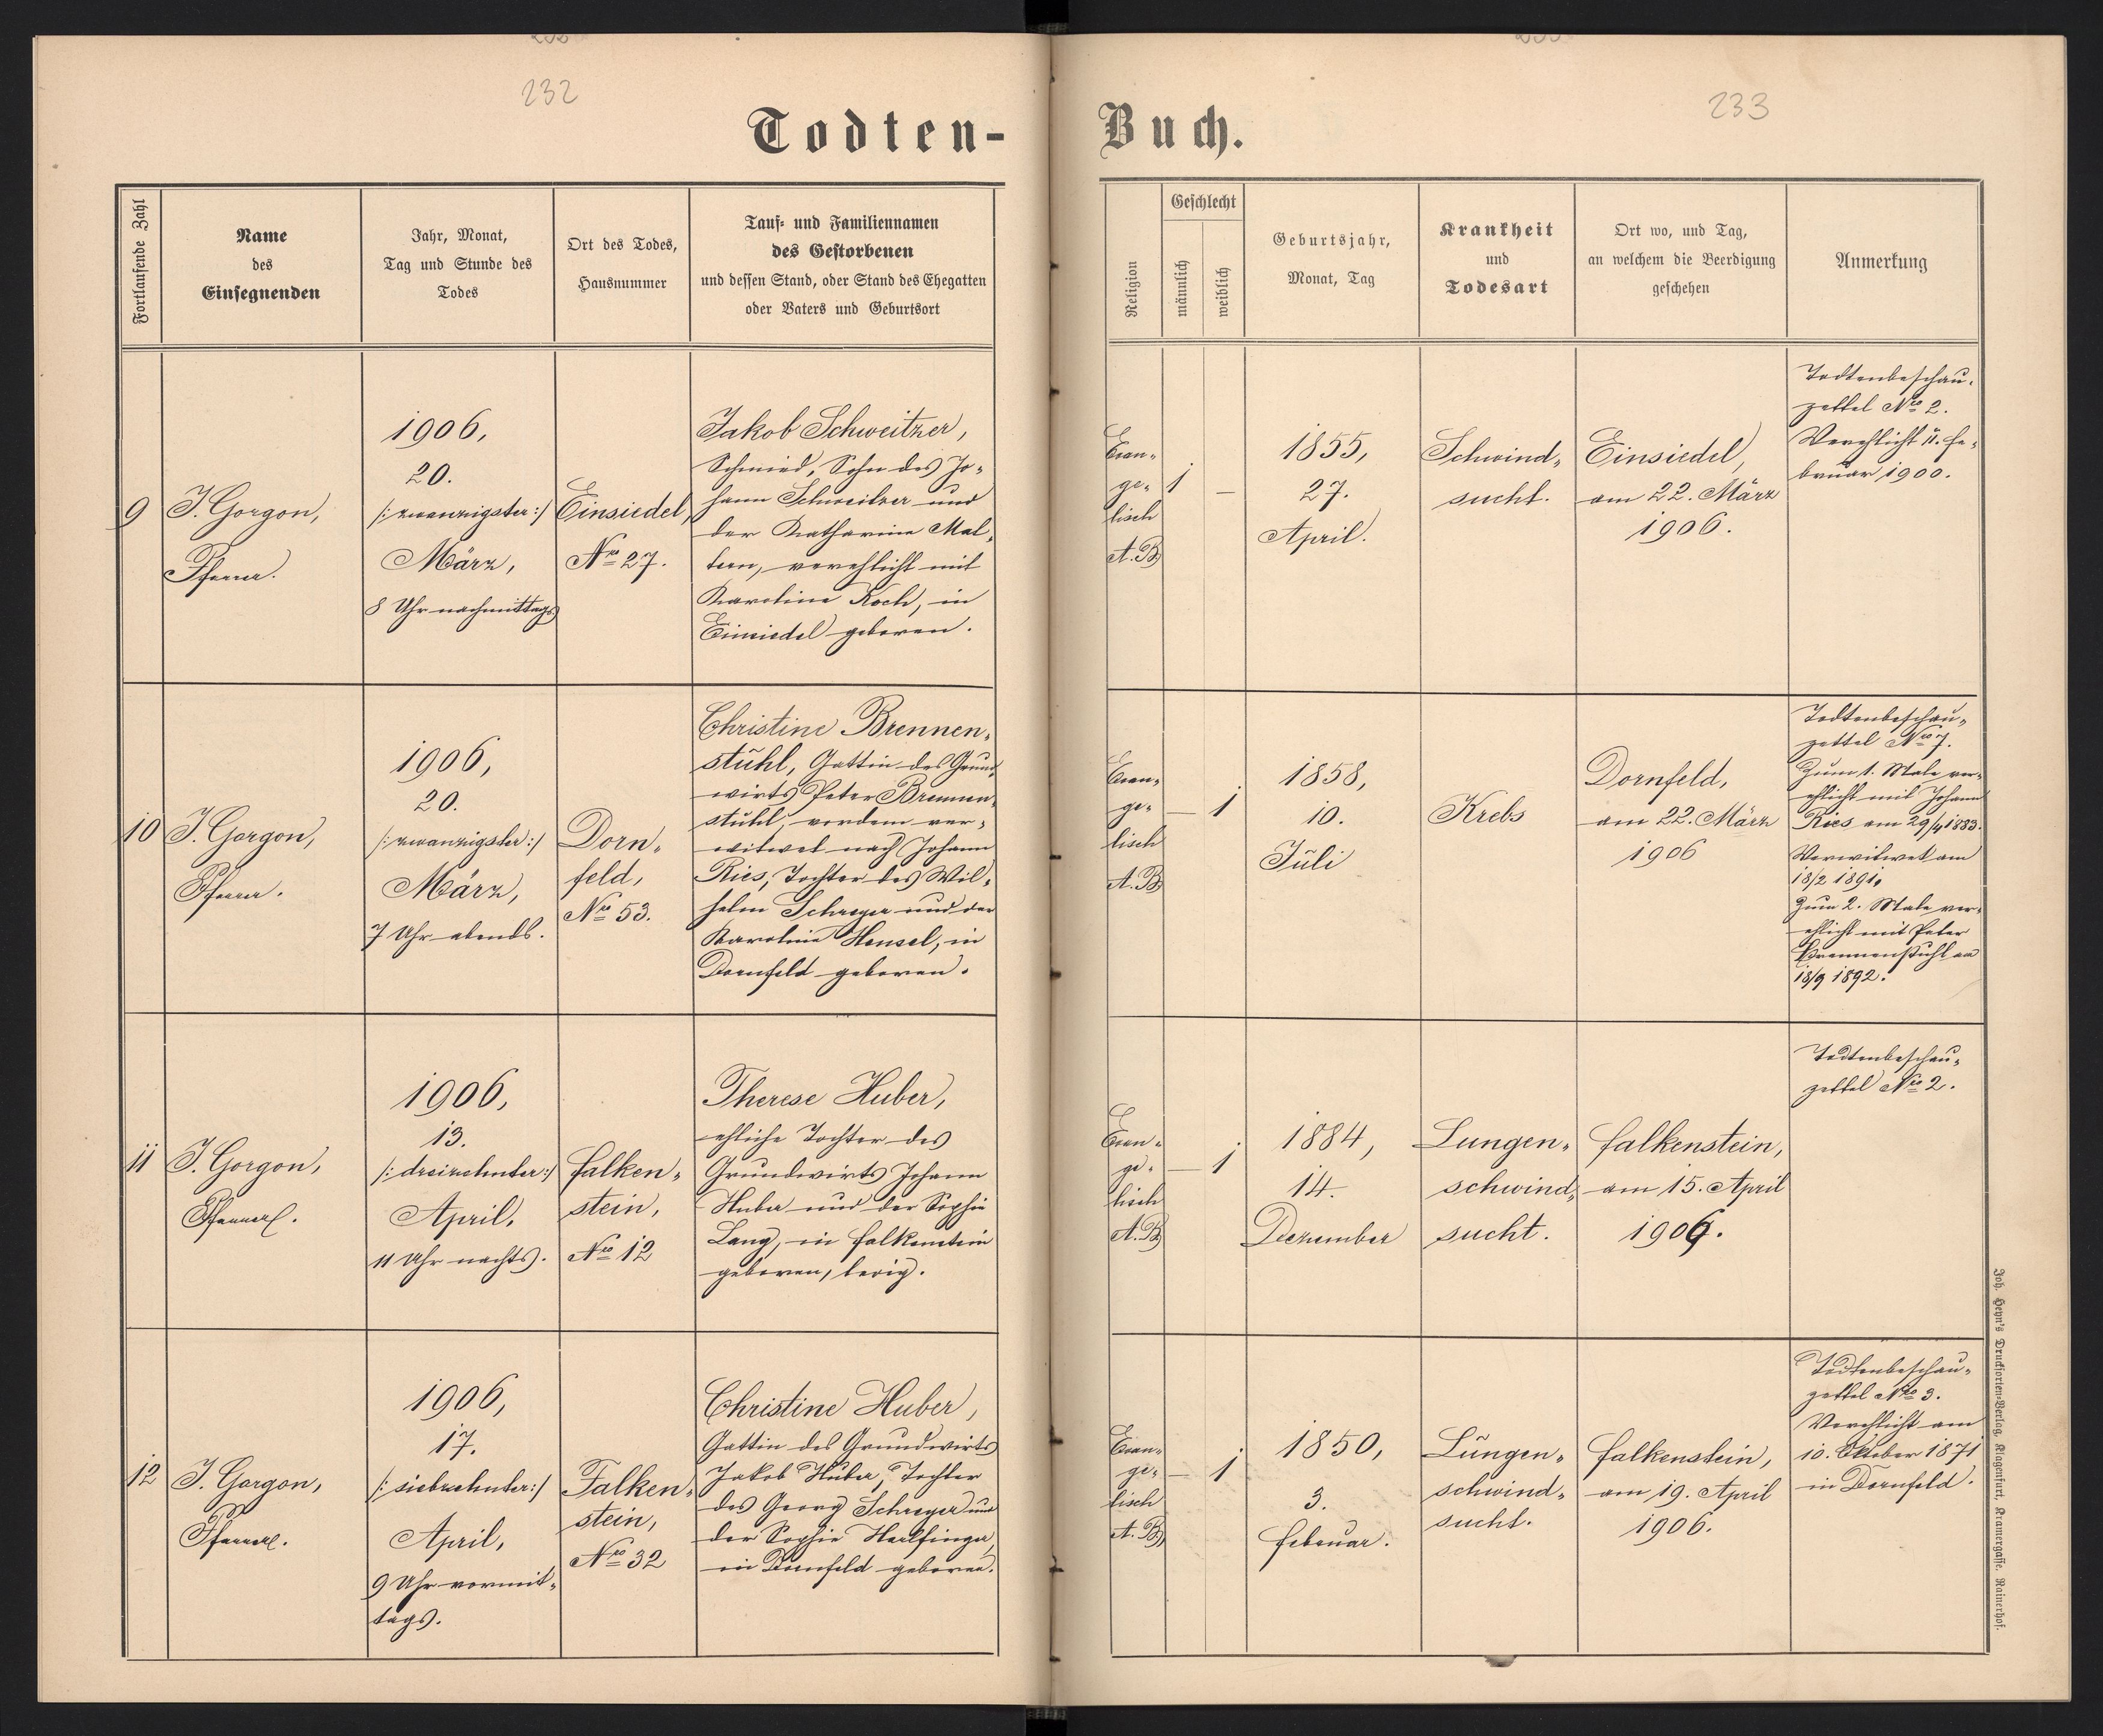 232
233
Todten-
Buch.
Fortlaufende Zahl
Name
des
Einsegnenden
Jahr, Monat,
Tag und Stunde des
Todes
Ort des Todes,
Hausnummer
Tauf- und Familiennamen
des Gestorbenen
und dessen Stand, oder Stand des Ehegatten
oder Vaters und Geburtsort
Religion
Geschlecht
männlich
weiblich
Geburtsjahr,
Monat, Tag
Krankheit
und
Todesart
Ort wo, und Tag,
an welchem die Beerdigung
geschehen
Anmerkung
9
J. Gorgon,
Pfarrer.
1906,
20.
/: zwanzigster :/
März,
8 Uhr nachmittags
Einsiedel,
Nro 27.
Jakob Schweitzer,
Schmied, Sohn des Jo-
hann Schweitzer und
der Katharina Mal-
tern, verehlicht mit
Karoline Koch, in
Einsiedel geboren.
Evan-
ge-
lisch
A.B
1
–
1855,
27.
April.
Schwind-
sucht.
Einsiedel,
am 22. März
1906.
Todtenbeschau-
zettel Nro 2.
Verehlicht 11. Fe-
bruar 1900.
10
J. Gorgon,
Pfarrer.
1906,
20.
/: zwanzigster :/
März,
7 Uhr abends.
Dorn-
feld,
Nro 53.
Christine Brennen-
stuhl, Gattin des Grund-
wirts Peter Brennen-
stuhl, vordem ver-
witwet nach Johann
Ries, Tochter des Wil-
helm Schreyer und der
Karoline Hensel, in
Dornfeld geboren.
Evan-
ge-
lisch
A.B
—
1
1858,
10.
Juli
Krebs
Dornfeld,
am 22. März
1906
Todtenbeschau-
zettel Nro 7.
Zum 1. Male ver-
ehlicht mit Johann
Ries am 29/4 1883.
Verwitwet am
18/2 1891.
Zum 2. Male ver-
ehlicht mit Peter
Brennenstuhl am
18/9 1892.
11
J. Gorgon,
Pfarrer.
1906,
13.
/: dreizehnter :/
April,
11 Uhr nachts.
Falken-
stein,
Nro 12
Therese Huber,
ehliche Tochter des
Grundwirts Johann
Huber und der Sophie
Lang, in Falkenstein
geboren, ledig.
Evan-
ge-
lisch
A.B
—
1
1884,
14.
Dezember
Lungen-
schwind-
sucht.
Falkenstein,
am 15. April
1906.
Todtenbeschau-
zettel Nro 2.
12
J. Gorgon,
Pfarrer.
1906,
17.
/: siebzehnter :/
April,
9 Uhr vormit-
tags.
Falken-
stein,
Nro 32
Christine Huber,
Gattin des Grundwirts
Jakob Huber, Tochter
des Georg Schreyer und
der Sophie Harlfinger,
in Dornfeld geboren.
Evan-
ge-
lisch
A.B
—
1
1850,
3.
Februar.
Lungen-
schwind-
sucht.
Falkenstein,
am 19. April
1906.
Todtenbeschau-
zettel Nro 3.
Verehlicht am
10. Oktober 1871
in Dornfeld.
Joh. Heyn's Drucksorten-Verlag, Klagenfurt, Kramergasse, Rainerhof.